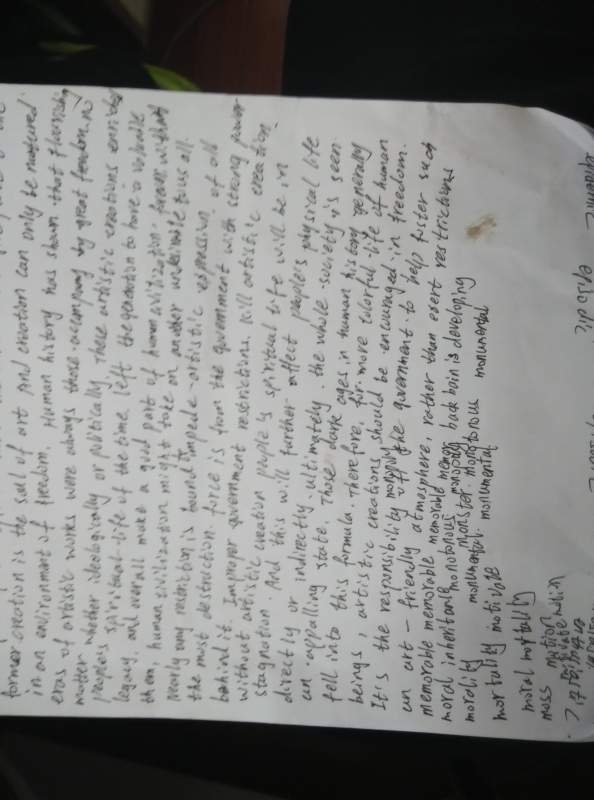 former creation is the soul of art And creation can only be nurtured
in an environment of freedom. Human history has shown that flourishing
eras of artistic works were always those accompany by great freedom, no
matter whether ideologically or politically These artistic creations enriched
people's spiritual-life of the time, left the generation to have a valuable
legacy, and overall make a good part of human civilization. without
then, human civilization might take on another undesirable thus all.
Nearly any restriction is bound to impede artistic expression of all
the most destruction force is from the government with strong power
behind it. Improper government restrictions. kill artistic creation.
without artistic creation people's spiritual life will be in
stagnation And this will further affect people's physical life
directly or indirectly. ultimately. the whole society is seen
an appalling state. Those dark ages in human history generally
fell into this formula. Therefore, for more colorful-life of human
beings, artistic creations should be encouraged in freedom.
It's the responsibility of the government to help foster such
an art - friendly atmosphere, rather than exert restrictions
memorable memorable memorable memor back is developing
moral inheritance monotonous monopoly
morality monumental monster monotonous monumental
mortality motivate monumental
moral mortality
moss motion
epidemic